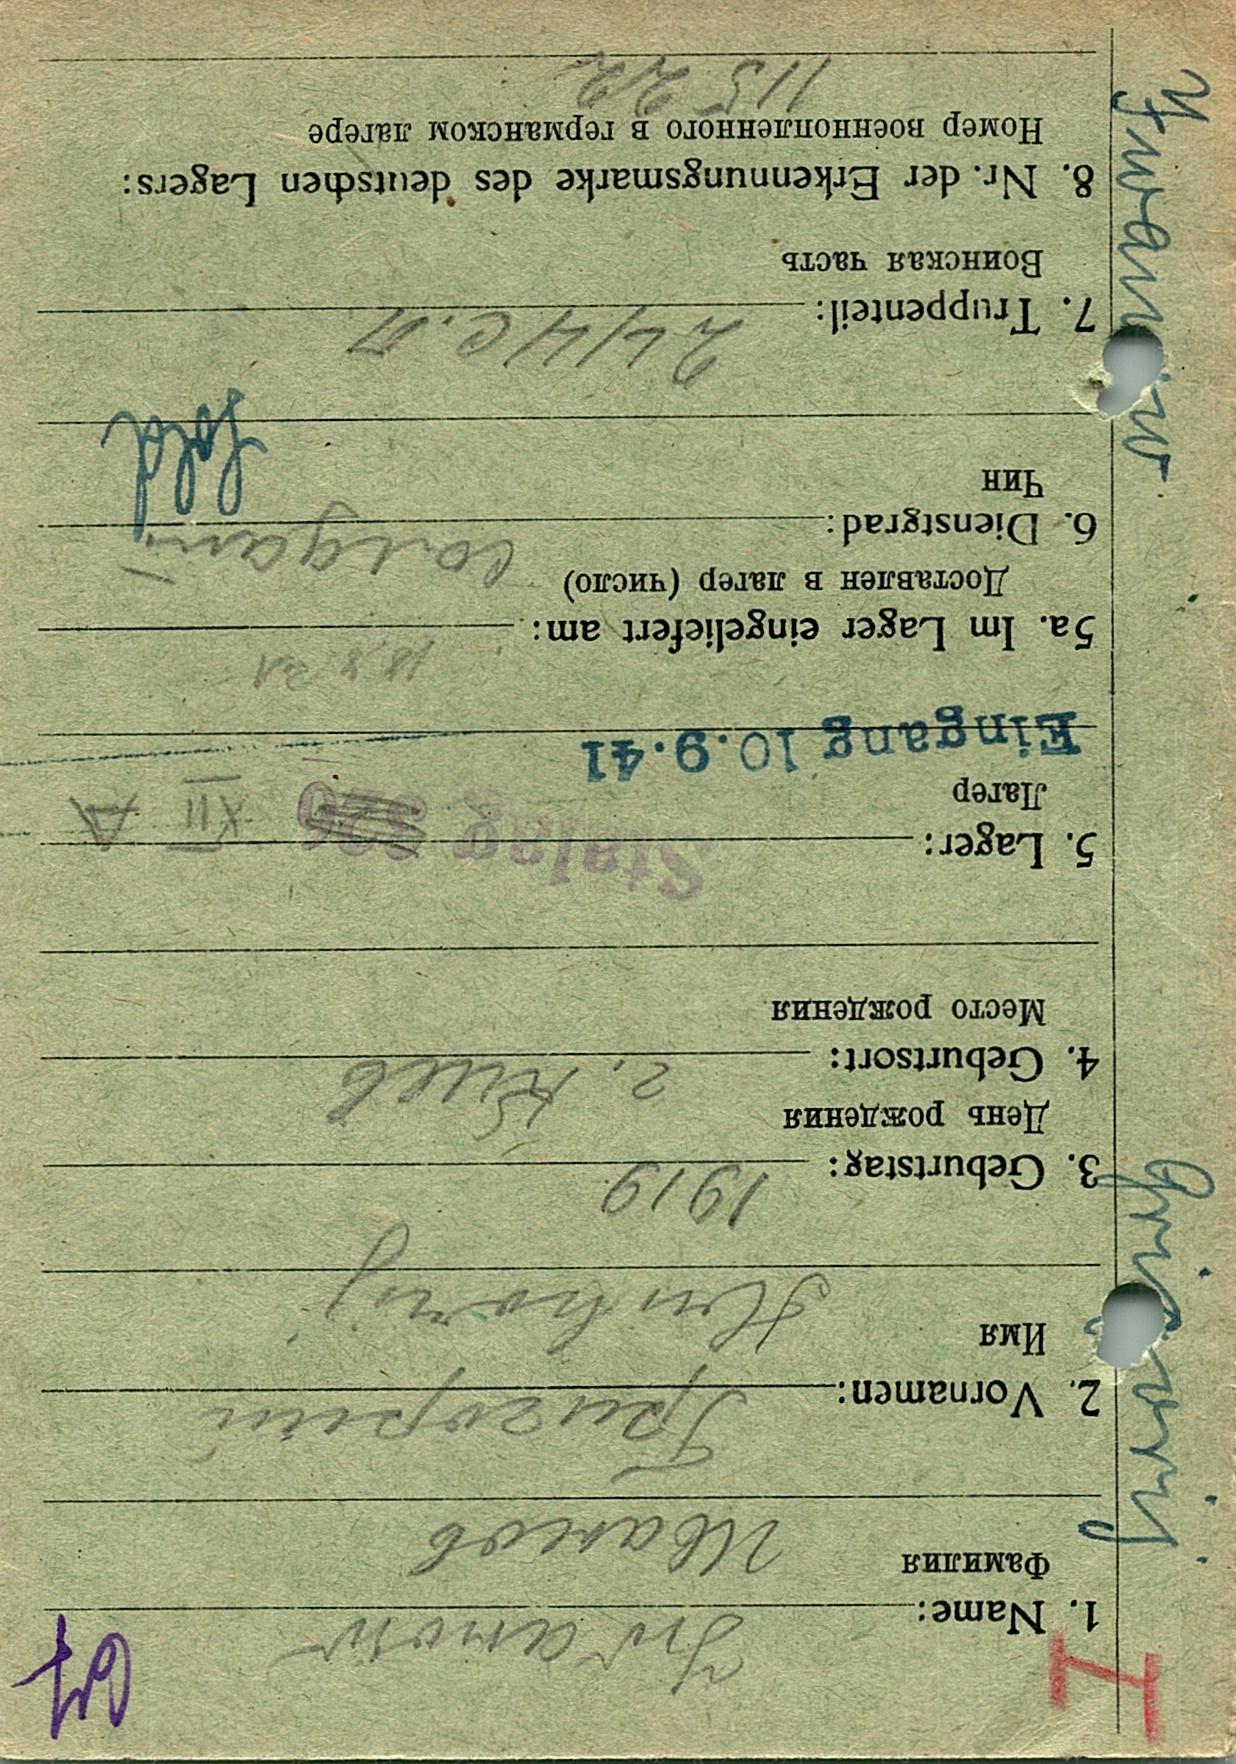 I
Of
1. Name: Iwanow
Фамилия Иванов
2. Vornamen: Григорий
Имя Grigorij
3. Geburtstag: 1919
День рождения
4. Geburtsort: г. Киев
Место рождения
5. Lager: Stalag 326 XII A
Лагер
Eingang 10.9.41
5a. Im Lager eingeliefert am: 18.8.41
Доставлен в лагер (число)
6. Dienstgrad: солдат Sold
Чин
7. Truppenteil: 244 с.п
Воинская часть
8. Nr. der Erkennungsmarke des deutschen Lagers:
Номер военнопленного в германском лагере
11522
Iwanow Grigorij